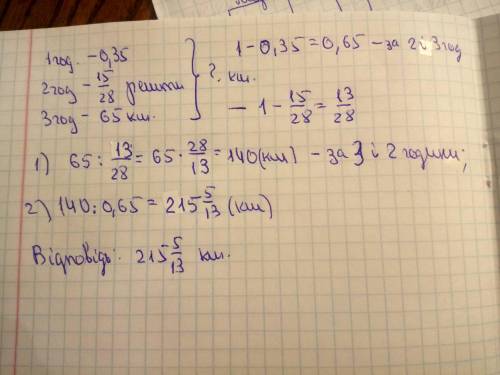 1год. – 0,35
2год – 15/28 решти } ?. км.
3год – 65 км.
1 – 0,35 = 0,65 – за 2 і 3 год
– 1 – 15/28 = 13/28
1) 65 : 13/28 = 65 · 28/13 = 140 (км) – за 3 і 2 години;
2) 140 : 0,65 = 215 5/13 (км)
Відповідь: 215 5/13 км.